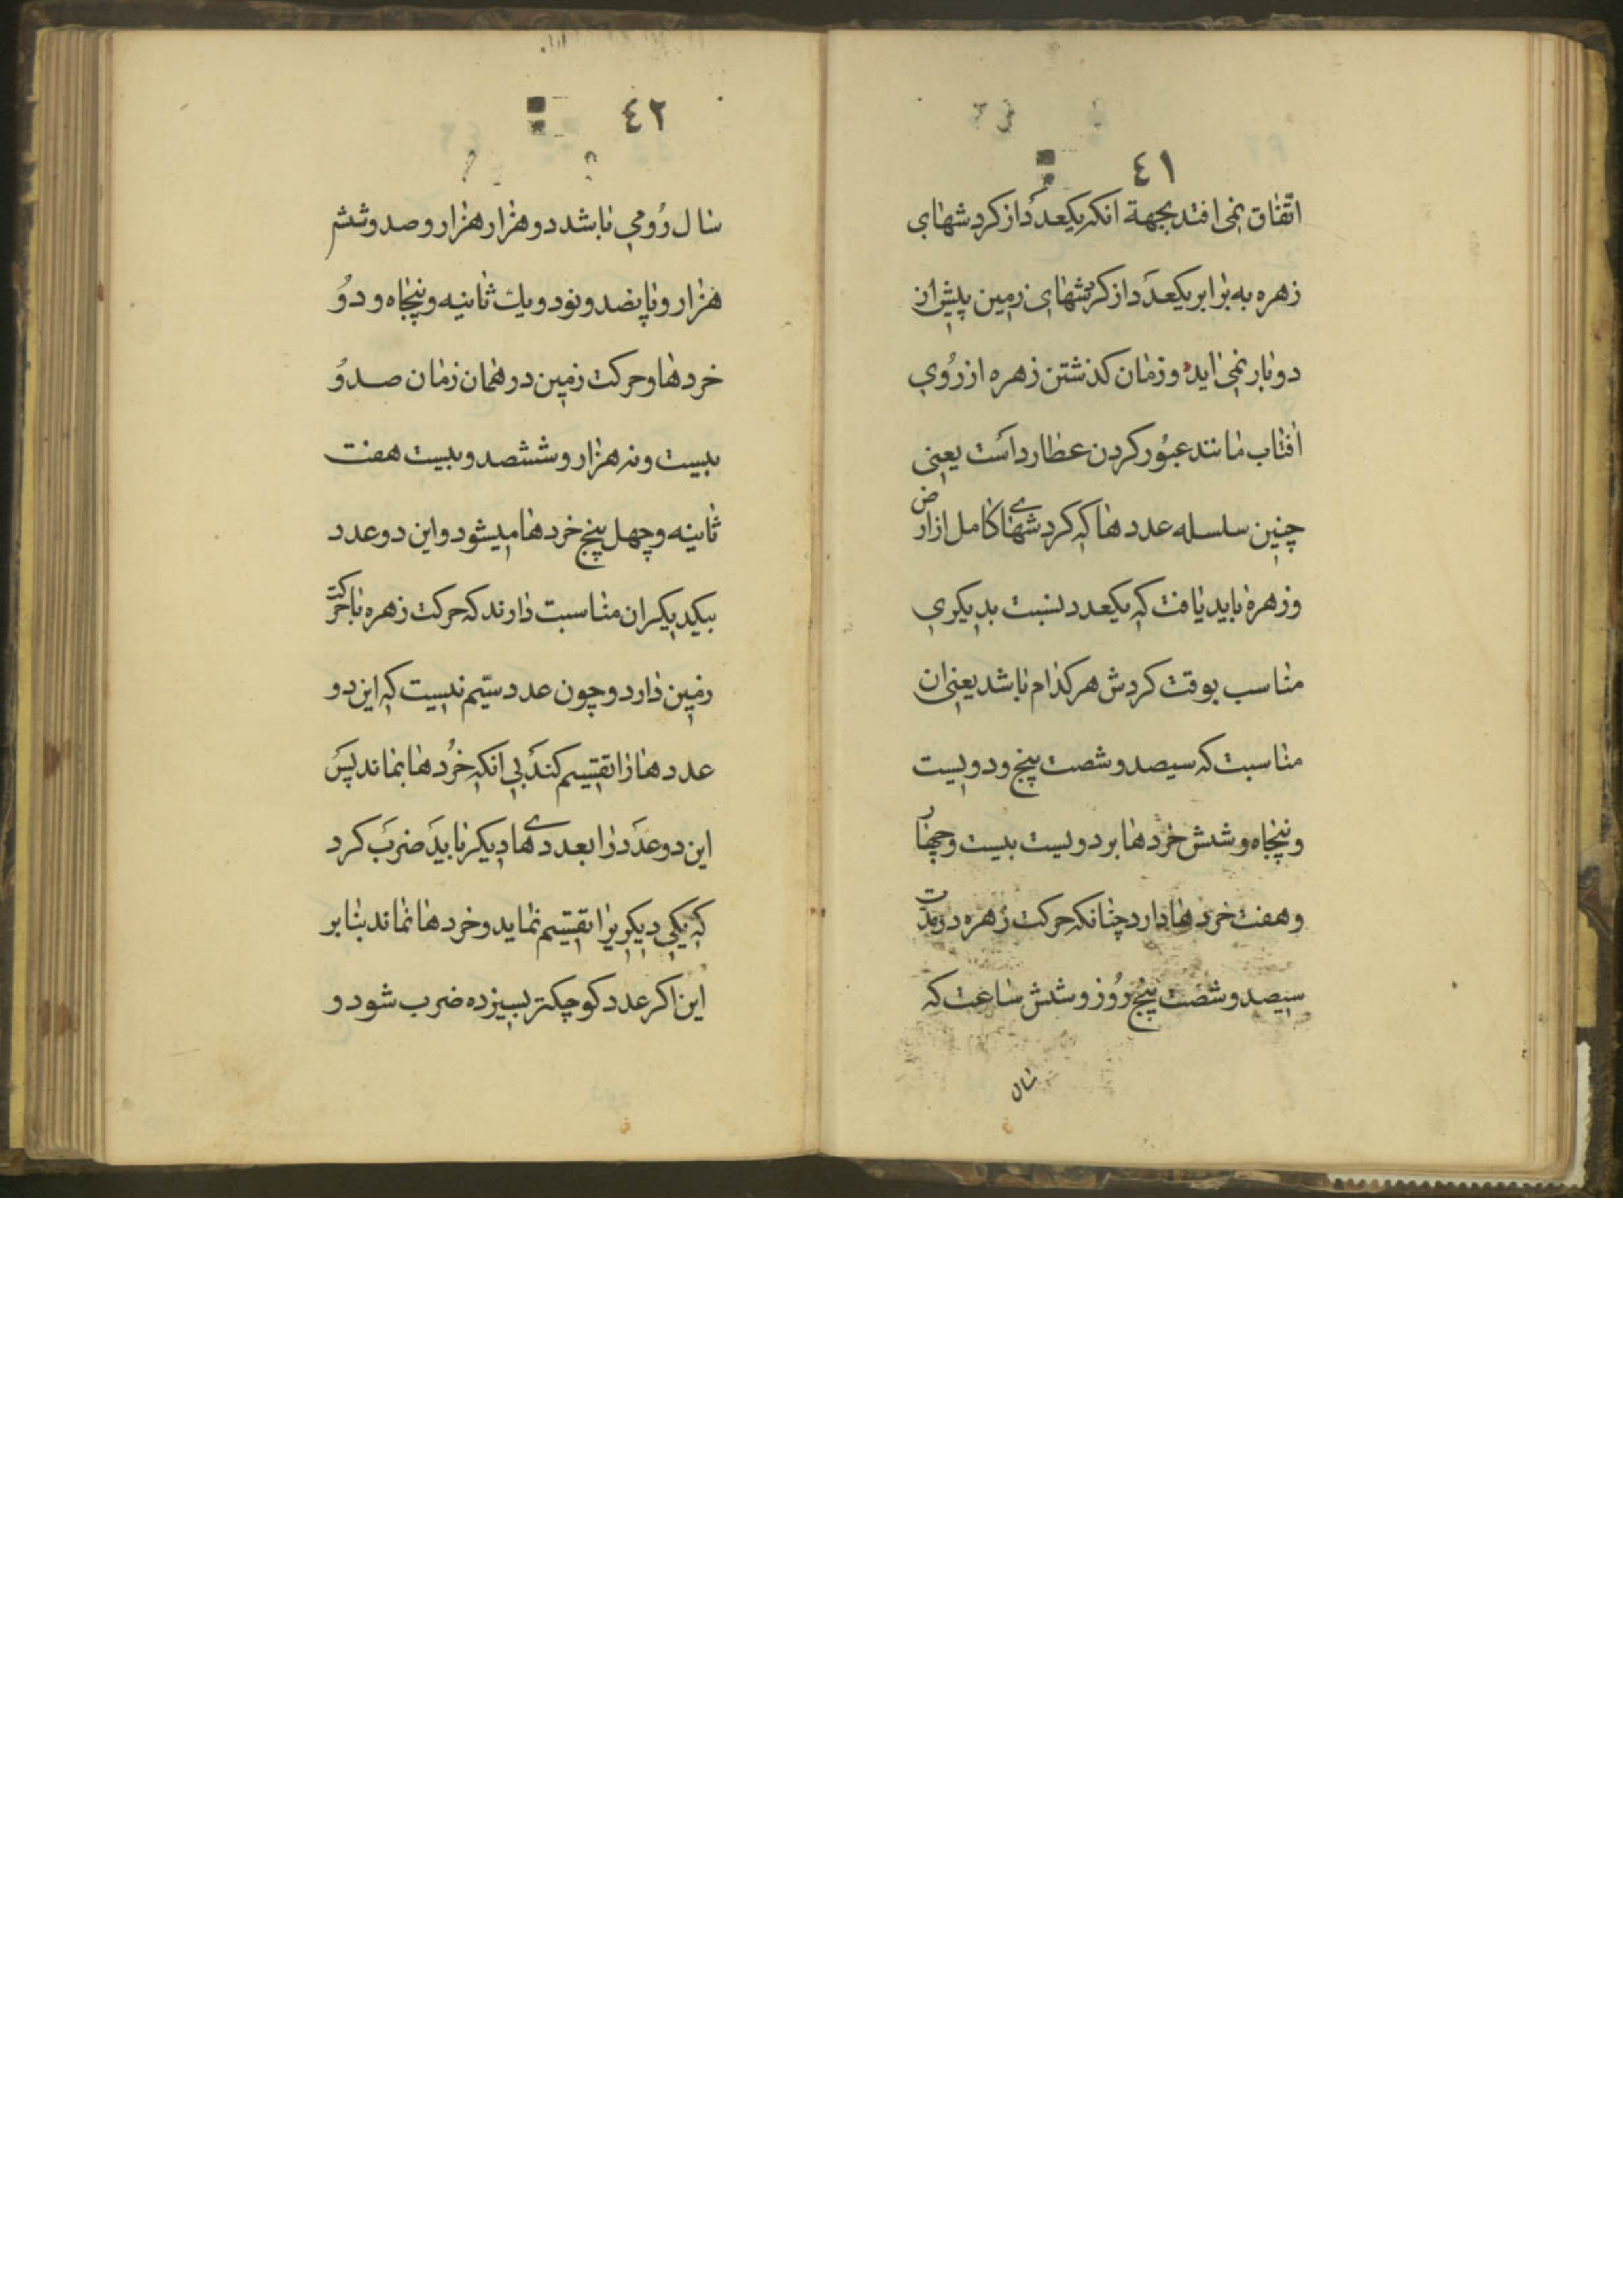 ٤١
اتّفاق نمی افتد بجهة انکه یکعدد از کردشهای
زهره به برابر یکعدد از کردشهای زمین پیش از
دو بار نمی اید و زمان کذشتن زهره از رُوی
افتاب مانند عبُور کردن عطارد است یعنی
چنین سلسله عدد ها که کردشهای کامل از ارض
و زهره باید یافت که یکعدد بنسبت بدیکری
مناسب بوقت کردش هر کدام باشد یعنی ان
مناسبت که سیصد و شصت پنج و دویست
و پنجاه و شش خردها بر دویست بیست و چهار
و هفت خردها دارد چنانکه حرکت زهره در مدت
سیصد و شصت پنج رُوز و شش ساعت که
سال
٤٢
سال رُومی باشد دو هزار هزار و صد و شش
هزار و پانصد و نود و یک ثانیه و پنجاه و دوُ
خردها و حرکت زمین در همان زمان صد وُ
بیست و نه هزار و ششصد و بیست هفت
ثانیه و چهل پنج خردها میشود و این دو عدد
بیکدیکران مناسبت دارند که حرکت زهره با حرکت
زمین دارد و چون عدد سیّم نیست که این دو
عددها را تقسیم کند بی انکه خُردها بماند پس
این دو عدد را بعددهای دیکر باید ضرب کرد
که یکی دیکریرا تقسیم نماید و خردها نماند بنا بر
این اکر عدد کوچکتر بسیزده ضرب شود و